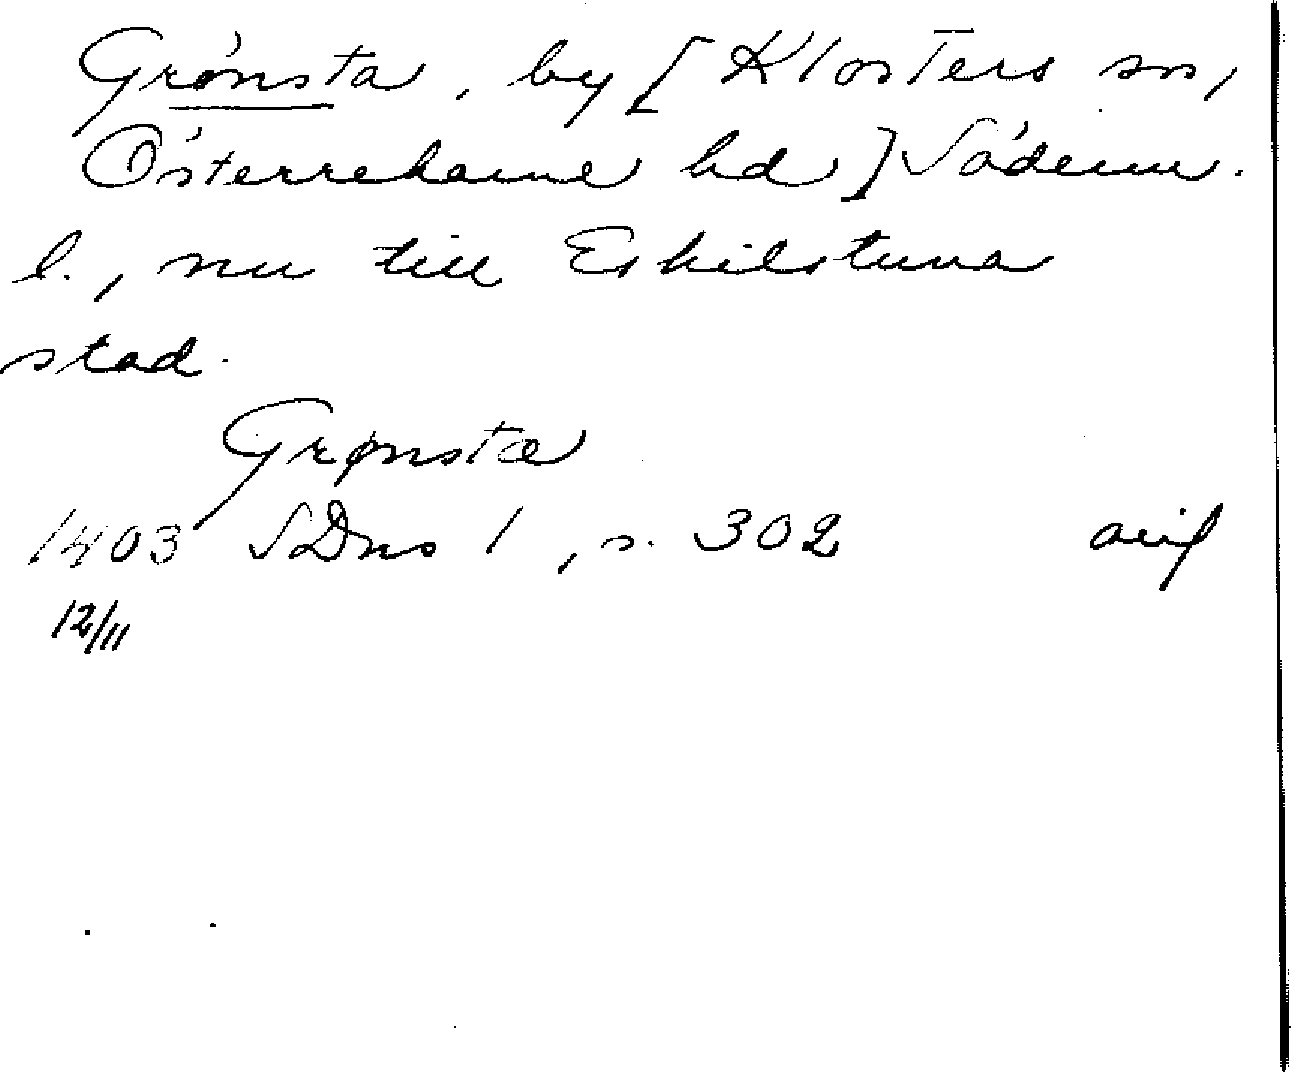 Grönsta, by [Klosters sn,
Österrekarne hd] Söderm.
l., nu till Eskilstuna
stad.
Grønsta
1403 SDns 1, s. 302 avif
12/11